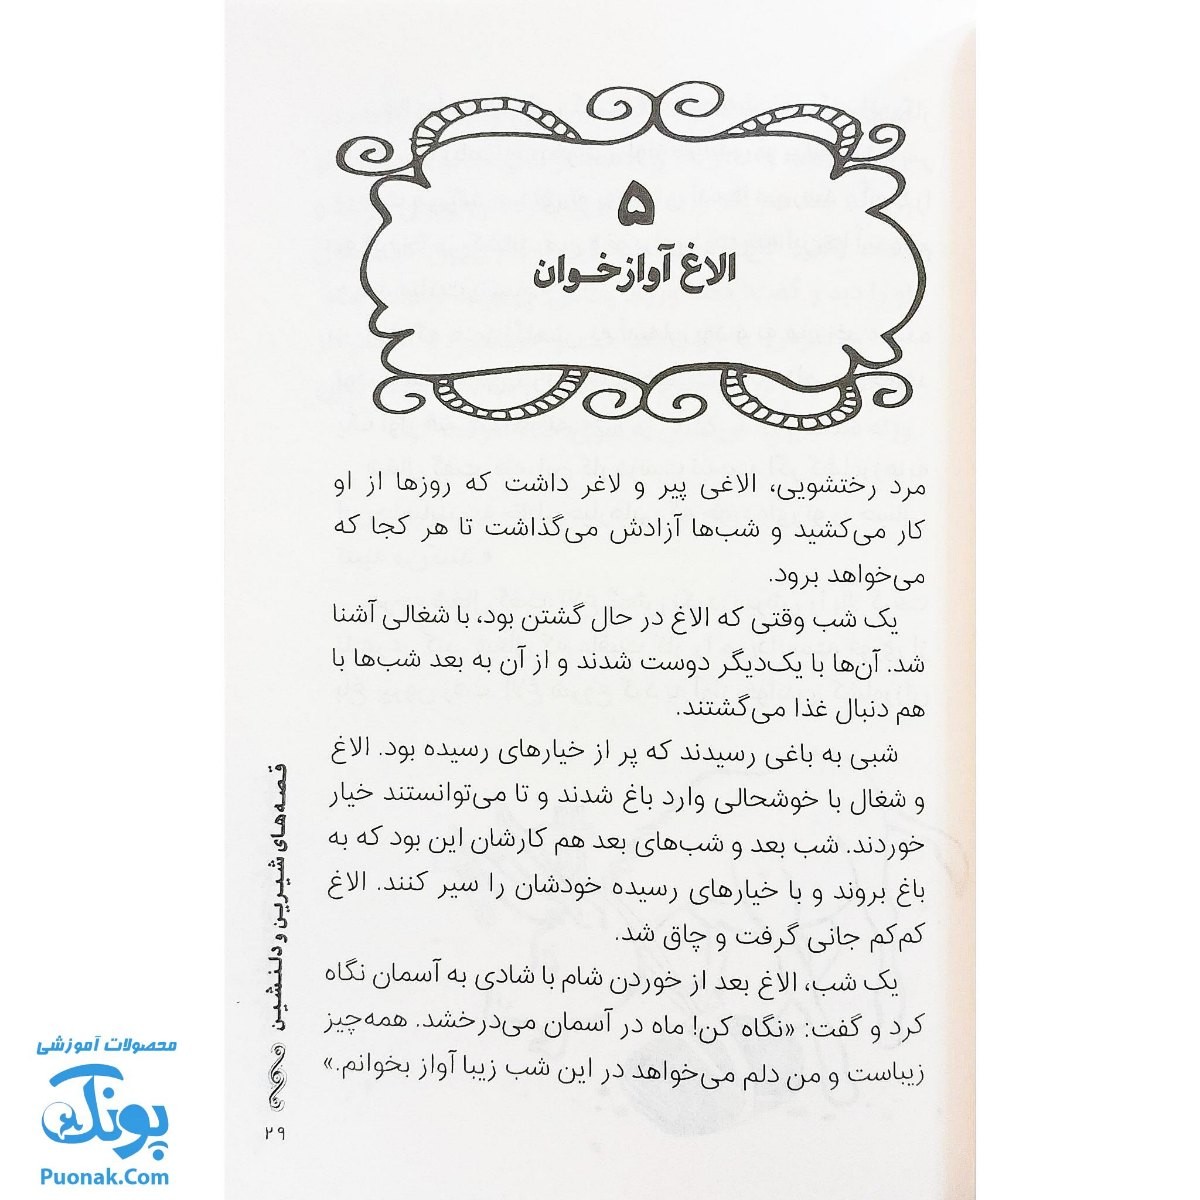 ۵
الاغ آوازخوان
مرد رختشویی، الاغی پیر و لاغر داشت که روزها از او
کار می‌کشید و شب‌ها آزادش می‌گذاشت تا هر کجا که
می‌خواهد برود.
یک شب وقتی که الاغ در حال گشتن بود، با شغالی آشنا
شد. آن‌ها با یک‌دیگر دوست شدند و از آن به بعد شب‌ها با
هم دنبال غذا می‌گشتند.
شبی به باغی رسیدند که پر از خیارهای رسیده بود. الاغ
و شغال با خوشحالی وارد باغ شدند و تا می‌توانستند خیار
خوردند. شب بعد و شب‌های بعد هم کارشان این بود که به
باغ بروند و با خیارهای رسیده خودشان را سیر کنند. الاغ
کم‌کم جانی گرفت و چاق شد.
یک شب، الاغ بعد از خوردن شام با شادی به آسمان نگاه
کرد و گفت: «نگاه کن! ماه در آسمان می‌درخشد. همه‌چیز
زیباست و من دلم می‌خواهد در این شب زیبا آواز بخوانم.»
قصه‌های شیرین و دلنشین
۲۹
محصولات آموزشی
پونک
Puonak.Com